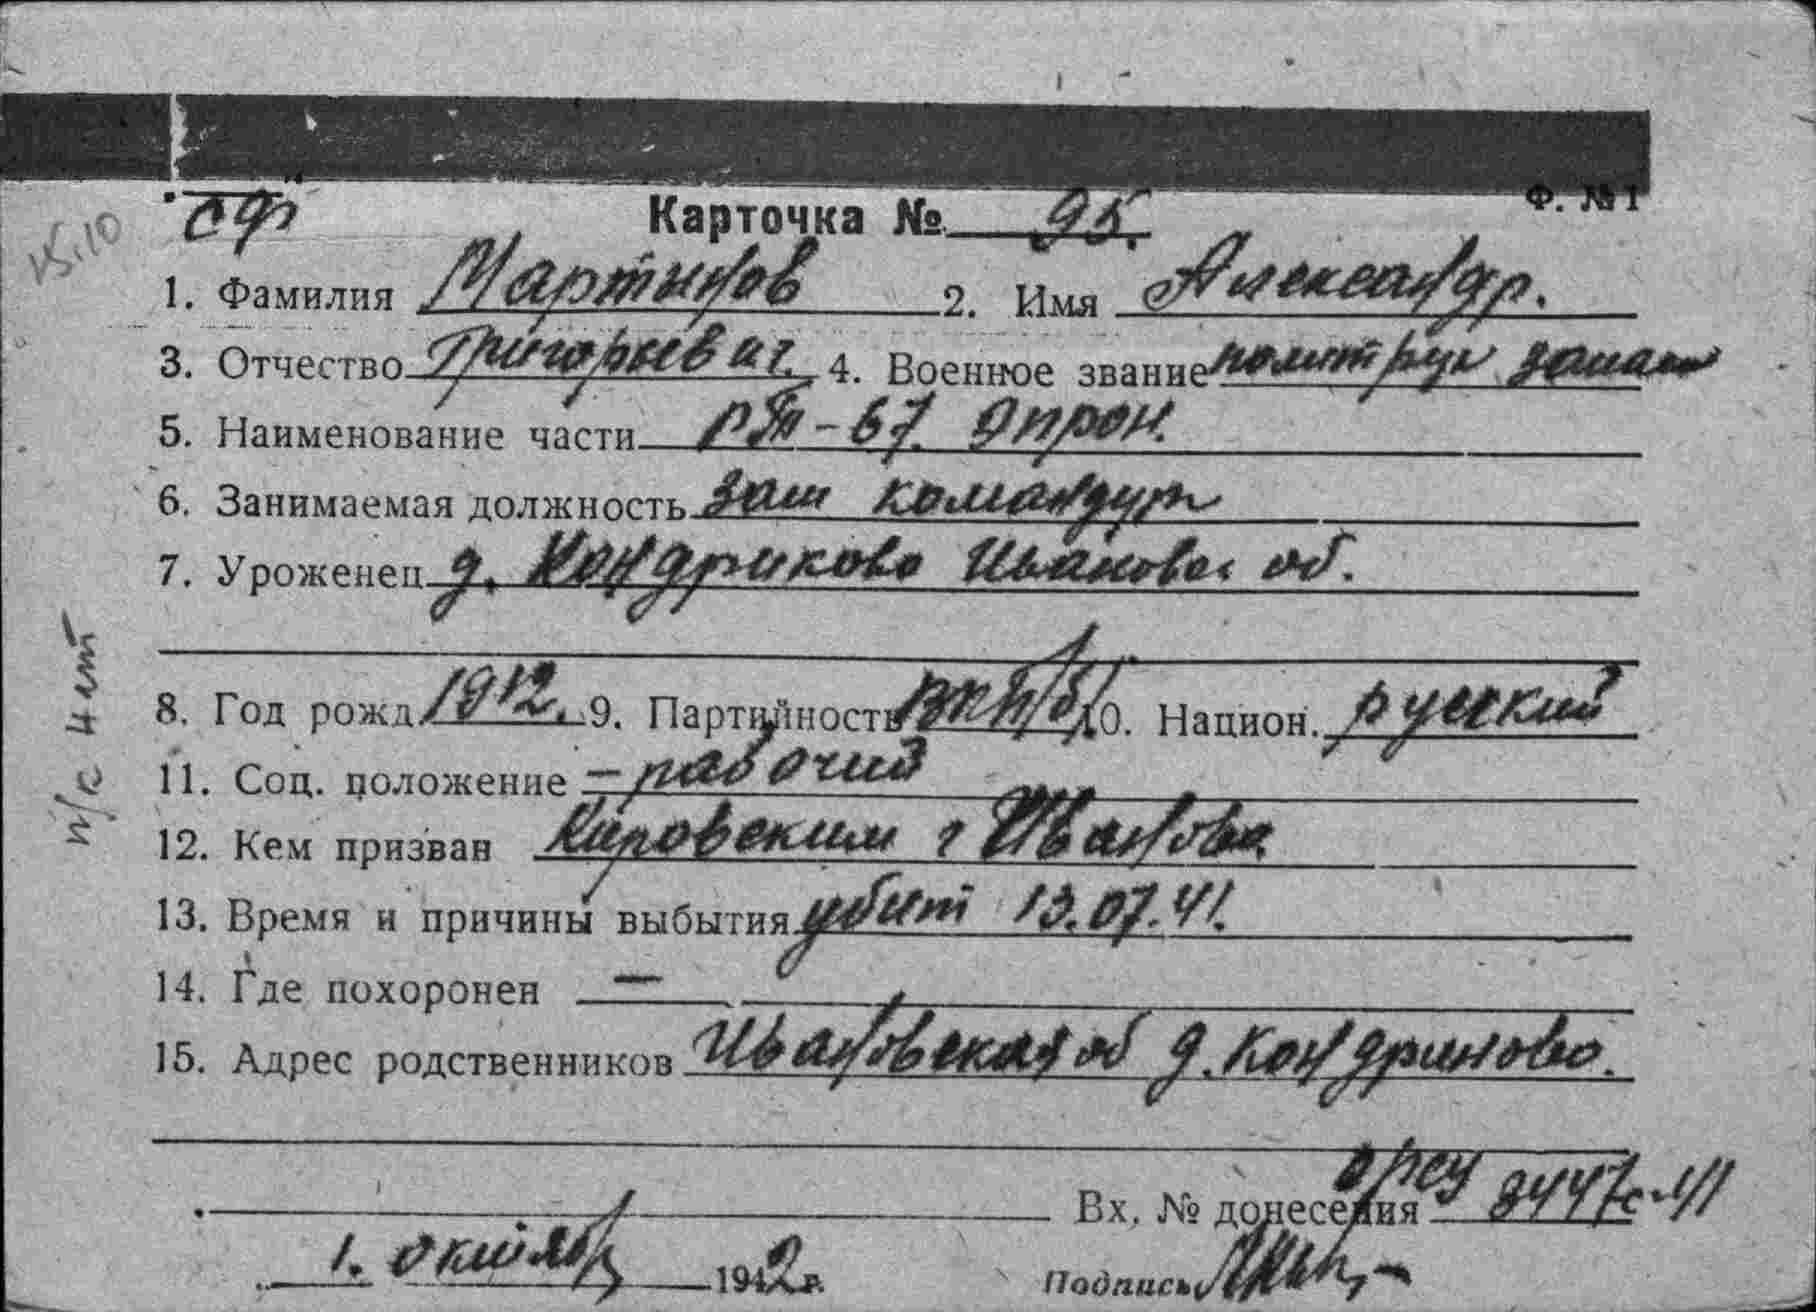 Ф. №1
сф Карточка № 95.
15.10
1. Фамилия Мартинов 2. Имя Александр.
3. Отчество Григорьевич. 4. Военное звание политрук запаса
5. Наименование части РТ-67. дпрон.
6. Занимаемая должность Зам командира
7. Уроженец д. Кондриково Ивановск об.
8. Год рожд. 1912. 9. Партийность ВКП/б/ 10. Национ. русский
11. Соц. положение – рабочий
12. Кем призван Кировским г Иванова
13. Время и причины выбытия убит 13.07.41.
14. Где похоронен —
15. Адрес родственников Ивановская об д. Кондриково.
п/с нит
Вх. № донесения 9447с-41
1. октября 1942 г. Подпись